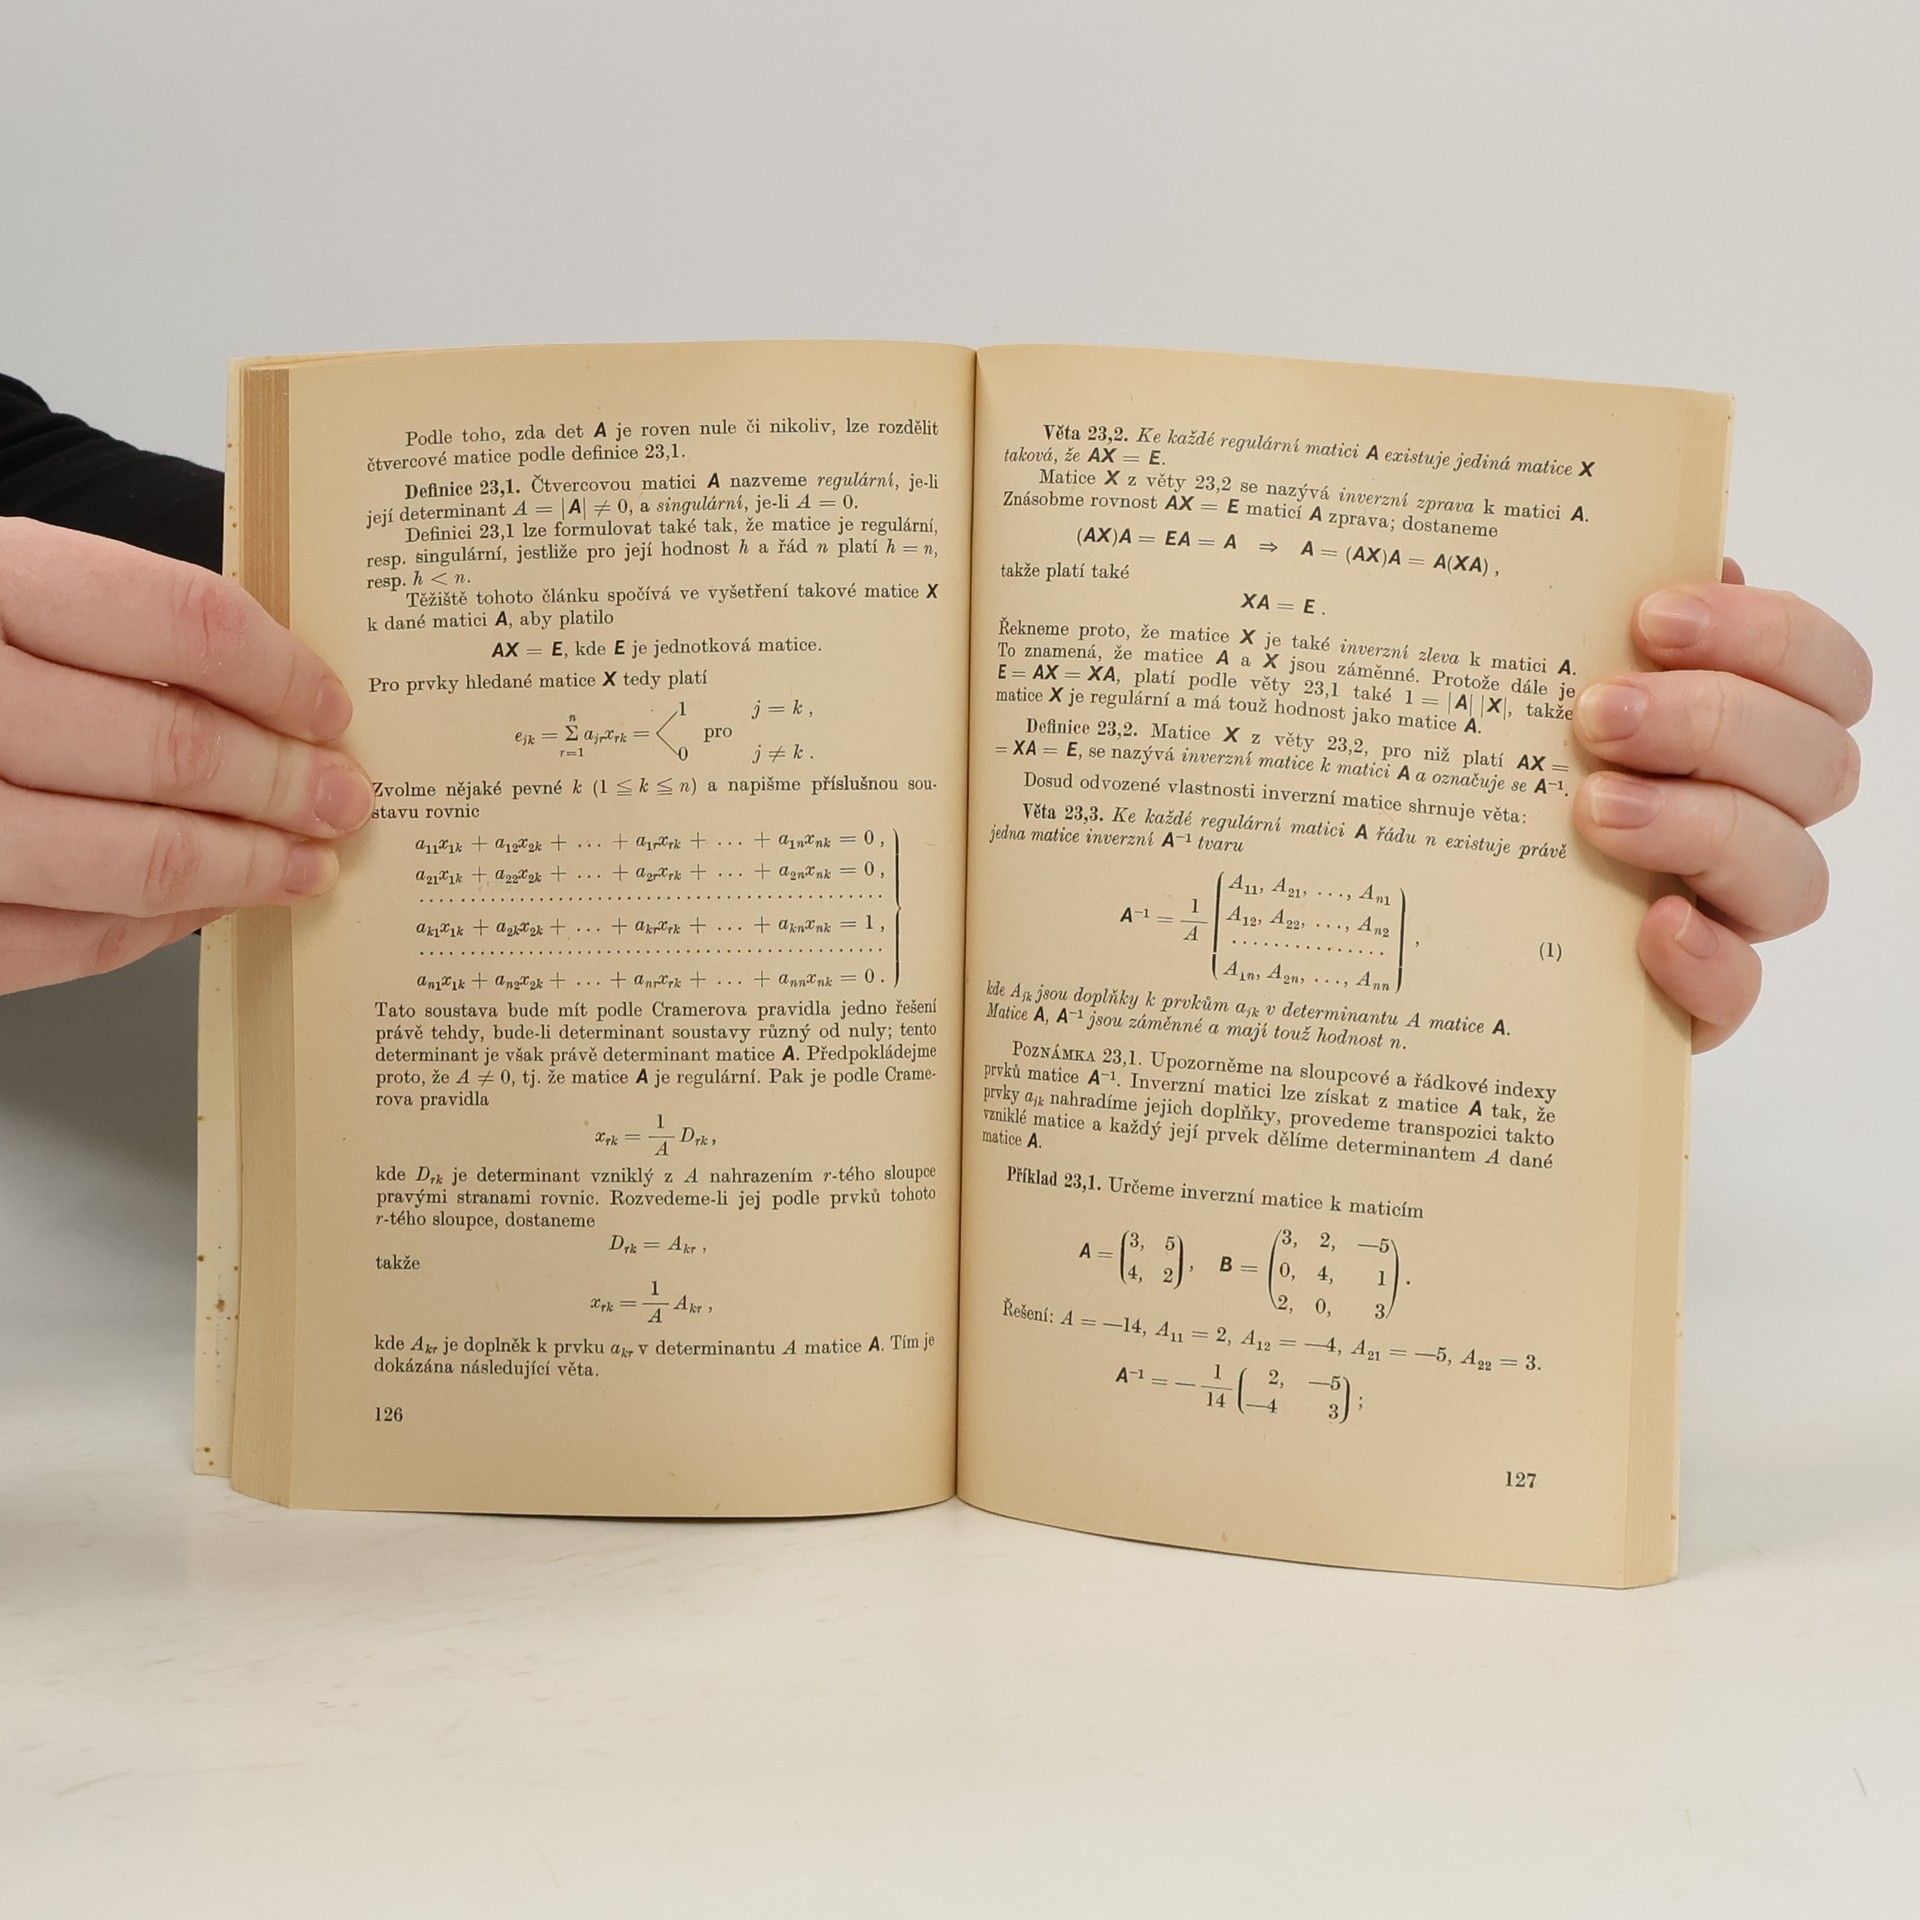 Podle toho, zda det A je roven nule či nikoliv, lze rozdělit
čtvercové matice podle definice 23,1.
Definice 23,1. Čtvercovou matici A nazveme regulární, je-li
její determinant A = |A| ≠ 0, a singulární, je-li A = 0.
Definici 23,1 lze formulovat také tak, že matice je regulární,
resp. singulární, jestliže pro její hodnost h a řád n platí h = n,
resp. h < n.
Těžiště tohoto článku spočívá ve vyšetření takové matice X
k dané matici A, aby platilo
AX = E, kde E je jednotková matice.
Pro prvky hledané matice X tedy platí
1 j = k ,
e_{jk} = \sum_{r=1}^{n} a_{jr}x_{rk} = < pro
0 j ≠ k .
Zvolme nějaké pevné k (1 ≦ k ≦ n) a napišme příslušnou sou-
stavu rovnic
a_{11}x_{1k} + a_{12}x_{2k} + ... + a_{1r}x_{rk} + ... + a_{1n}x_{nk} = 0 ,
a_{21}x_{1k} + a_{22}x_{2k} + ... + a_{2r}x_{rk} + ... + a_{2n}x_{nk} = 0 ,
. . . . . . . . . . . . . . . . . . . . . . . . . . . . . . . .
a_{k1}x_{1k} + a_{2k}x_{2k} + ... + a_{kr}x_{rk} + ... + a_{kn}x_{nk} = 1 ,
. . . . . . . . . . . . . . . . . . . . . . . . . . . . . . . .
a_{n1}x_{1k} + a_{n2}x_{2k} + ... + a_{nr}x_{rk} + ... + a_{nn}x_{nk} = 0 .
Tato soustava bude mít podle Cramerova pravidla jedno řešení
právě tehdy, bude-li determinant soustavy různý od nuly; tento
determinant je však právě determinant matice A. Předpokládejme
proto, že A ≠ 0, tj. že matice A je regulární. Pak je podle Crame-
rova pravidla
x_{rk} = \frac{1}{A} D_{rk} ,
kde D_{rk} je determinant vzniklý z A nahrazením r-tého sloupce
pravými stranami rovnic. Rozvedeme-li jej podle prvků tohoto
r-tého sloupce, dostaneme
D_{rk} = A_{kr} ,
takže
x_{rk} = \frac{1}{A} A_{kr} ,
kde A_{kr} je doplněk k prvku a_{kr} v determinantu A matice A. Tím je
dokázána následující věta.
126
Věta 23,2. Ke každé regulární matici A existuje jediná matice X
taková, že AX = E.
Matice X z věty 23,2 se nazývá inverzní zprava k matici A.
Znásobme rovnost AX = E maticí A zprava; dostaneme
(AX)A = EA = A ⇒ A = (AX)A = A(XA) ,
takže platí také
XA = E .
Řekneme proto, že matice X je také inverzní zleva k matici A.
To znamená, že matice A a X jsou záměnné. Protože dále je
E = AX = XA, platí podle věty 23,1 také 1 = |A| |X|, takže
matice X je regulární a má touž hodnost jako matice A.
Definice 23,2. Matice X z věty 23,2, pro niž platí AX =
= XA = E, se nazývá inverzní matice k matici A a označuje se A^{-1}.
Dosud odvozené vlastnosti inverzní matice shrnuje věta:
Věta 23,3. Ke každé regulární matici A řádu n existuje právě
jedna matice inverzní A^{-1} tvaru
A_{11}, A_{21}, ..., A_{n1}
A^{-1} = \frac{1}{A} A_{12}, A_{22}, ..., A_{n2} ,
. . . . . . . . . . . . . (1)
A_{1n}, A_{2n}, ..., A_{nn}
kde A_{jk} jsou doplňky k prvkům a_{jk} v determinantu A matice A.
Matice A, A^{-1} jsou záměnné a mají touž hodnost n.
POZNÁMKA 23,1. Upozorněme na sloupcové a řádkové indexy
prvků matice A^{-1}. Inverzní matici lze získat z matice A tak, že
prvky a_{jk} nahradíme jejich doplňky, provedeme transpozici takto
vzniklé matice a každý její prvek dělíme determinantem A dané
matice A.
Příklad 23,1. Určeme inverzní matice k maticím
A = \begin{pmatrix} 3, & 5 \\ 4, & 2 \end{pmatrix}, B = \begin{pmatrix} 3, & 2, & -5 \\ 0, & 4, & 1 \\ 2, & 0, & 3 \end{pmatrix}.
Řešení: A = —14, A_{11} = 2, A_{12} = —4, A_{21} = —5, A_{22} = 3.
A^{-1} = - \frac{1}{14} \begin{pmatrix} 2, & -5 \\ -4 & 3 \end{pmatrix} ;
127